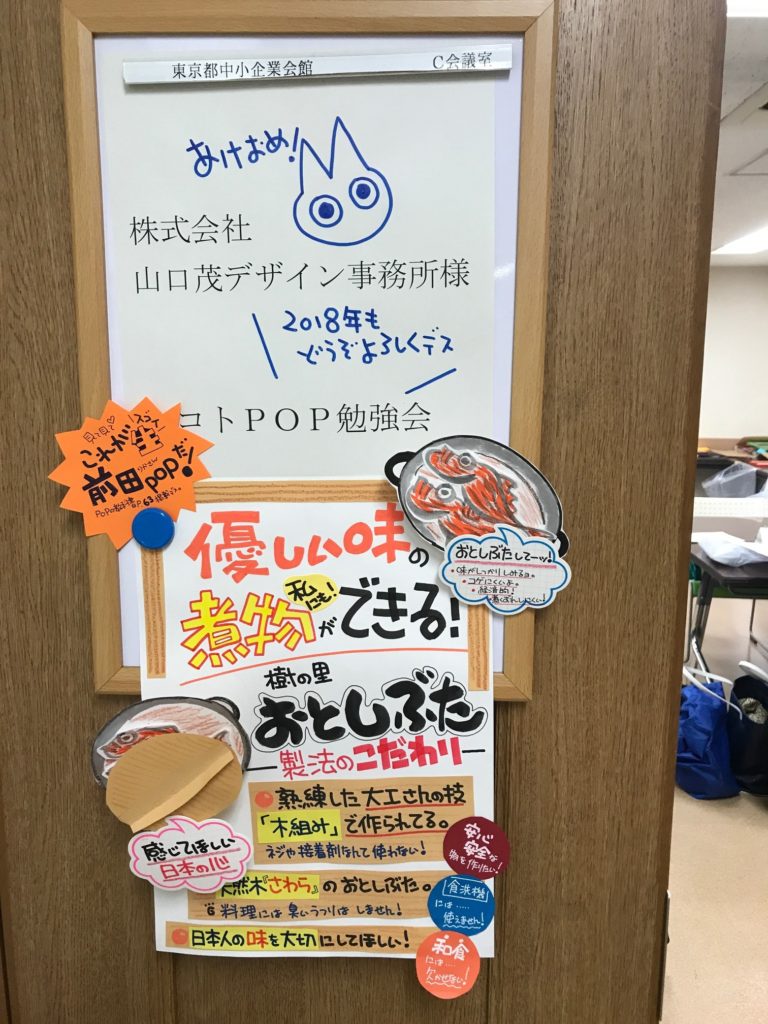 東京都中小企業会館 C会議室
あけおめ!
株式会社
山口茂デザイン事務所様
2018年も
どうぞよろしくデス
コトPOP勉強会
スゴイ
これが
前田popだ!
優しい味の
煮物が
私にも!
できる!
おとしぶたしてーッ!
・味がしっかりしみるョ。
・コゲにくいよ。
・経済的!
・煮くずれしにくい!
樹の里
おとしぶた
製法のこだわり
熟練した大工さんの技
「木組み」で作られてる。
ネジや接着剤なんて使わない!
感じてほしい
日本の心
天然木『さわら』のおとしぶた。
料理には臭いうつりはしません!
日本人の味を大切にしてほしい!
安心
安全な
物を作りたい!
食洗機
には.....
使えません!
和食
には....
欠かせない!